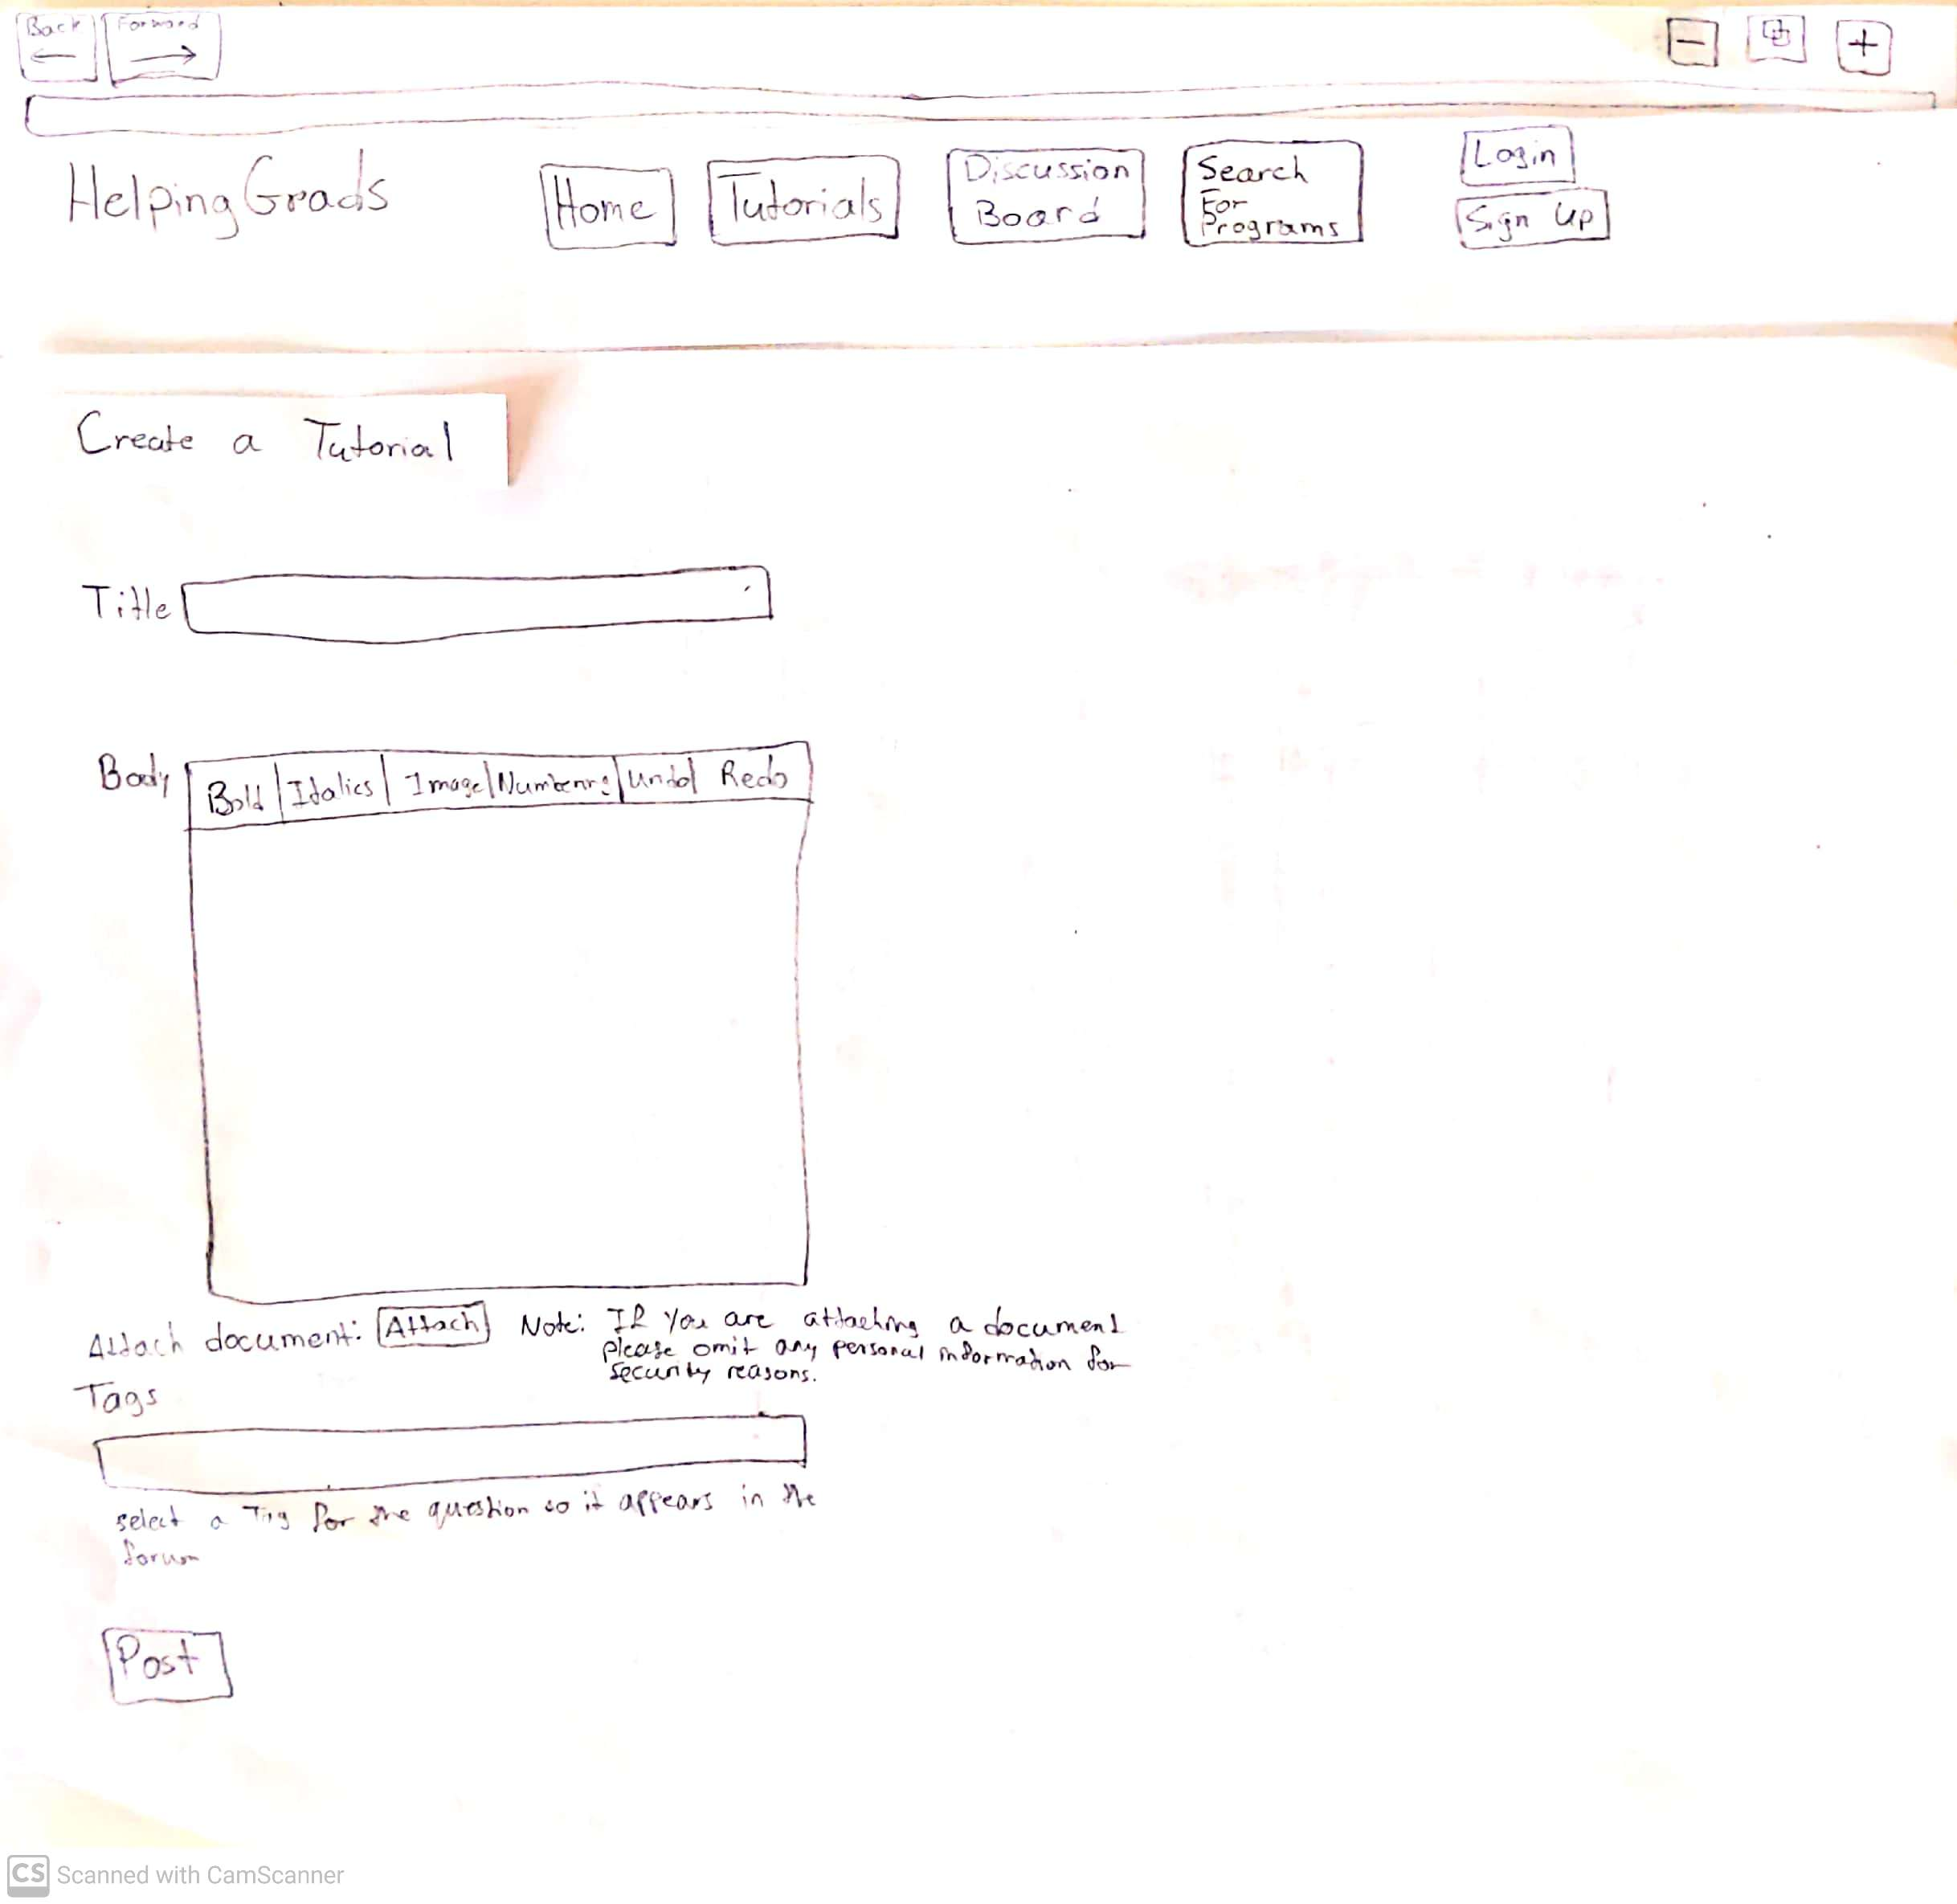 Back Forward
HelpingGrads Home Tutorials Discussion Board Search For Programs Login Sign Up
Create a Tutorial
Title
Body Bold Idalics Image Undo Redo
Attach document: Attach Note: If you are attaching a document
please omit any personal information for
security reasons.
Tags
select a Tag for the question so it appears in the
forum
Post
CS Scanned with CamScanner